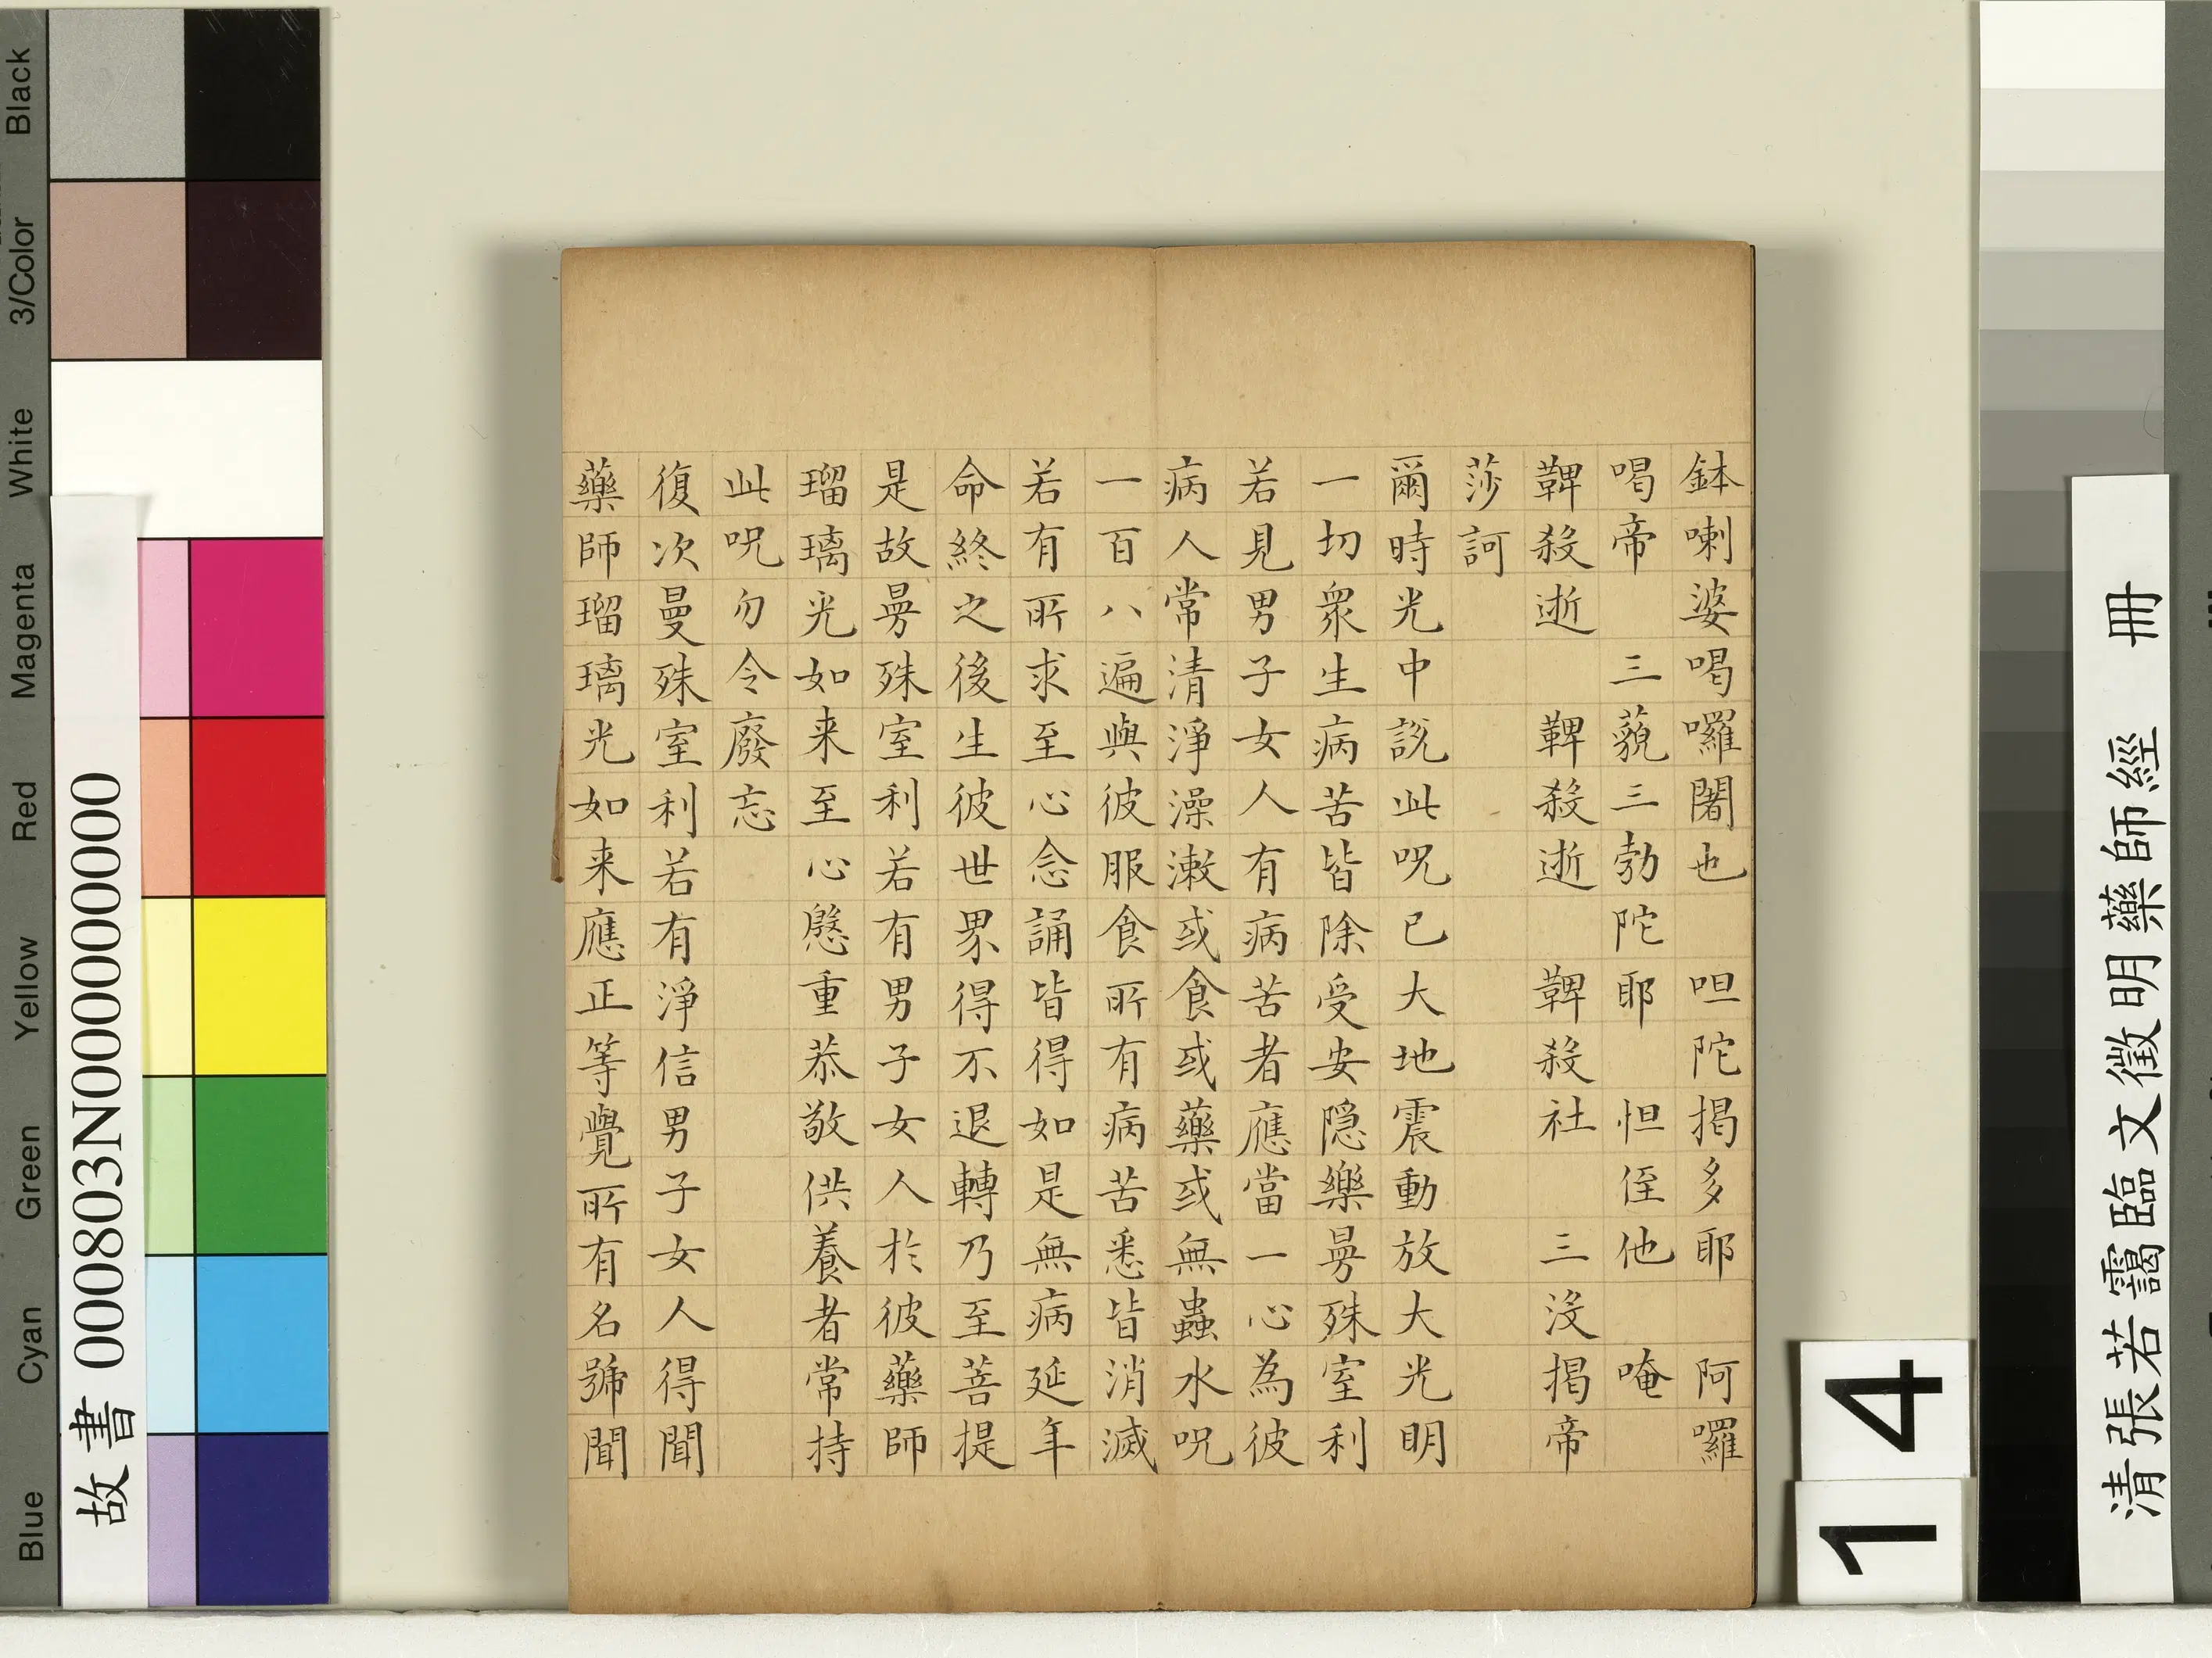 鉢喇婆喝囉闍也 呾陀揭多耶 阿囉
喝帝 三藐三勃陀耶 怛侄他 唵
鞞殺逝 鞞殺逝 鞞殺社 三沒揭帝
莎訶
爾時光中說此呪已大地震動放大光明
一切衆生病苦皆除受安隱樂曼殊室利
若見男子女人有病苦者應當一心為彼
病人常清淨澡漱或食或藥或無蟲水呪
一百八遍與彼服食所有病苦悉皆消滅
若有所求至心念誦皆得如是無病延年
命終之後生彼世界得不退轉乃至菩提
是故曼殊室利若有男子女人於彼藥師
瑠璃光如来至心慇重恭敬供養者常持
此呪勿令廢忘
復次曼殊室利若有淨信男子女人得聞
藥師瑠璃光如来應正等覺所有名號聞
清張若靄臨文徵明藥師經 冊
14
故書 000803N000000000
Blue Cyan Green Yellow Red Magenta White 3/Color Black